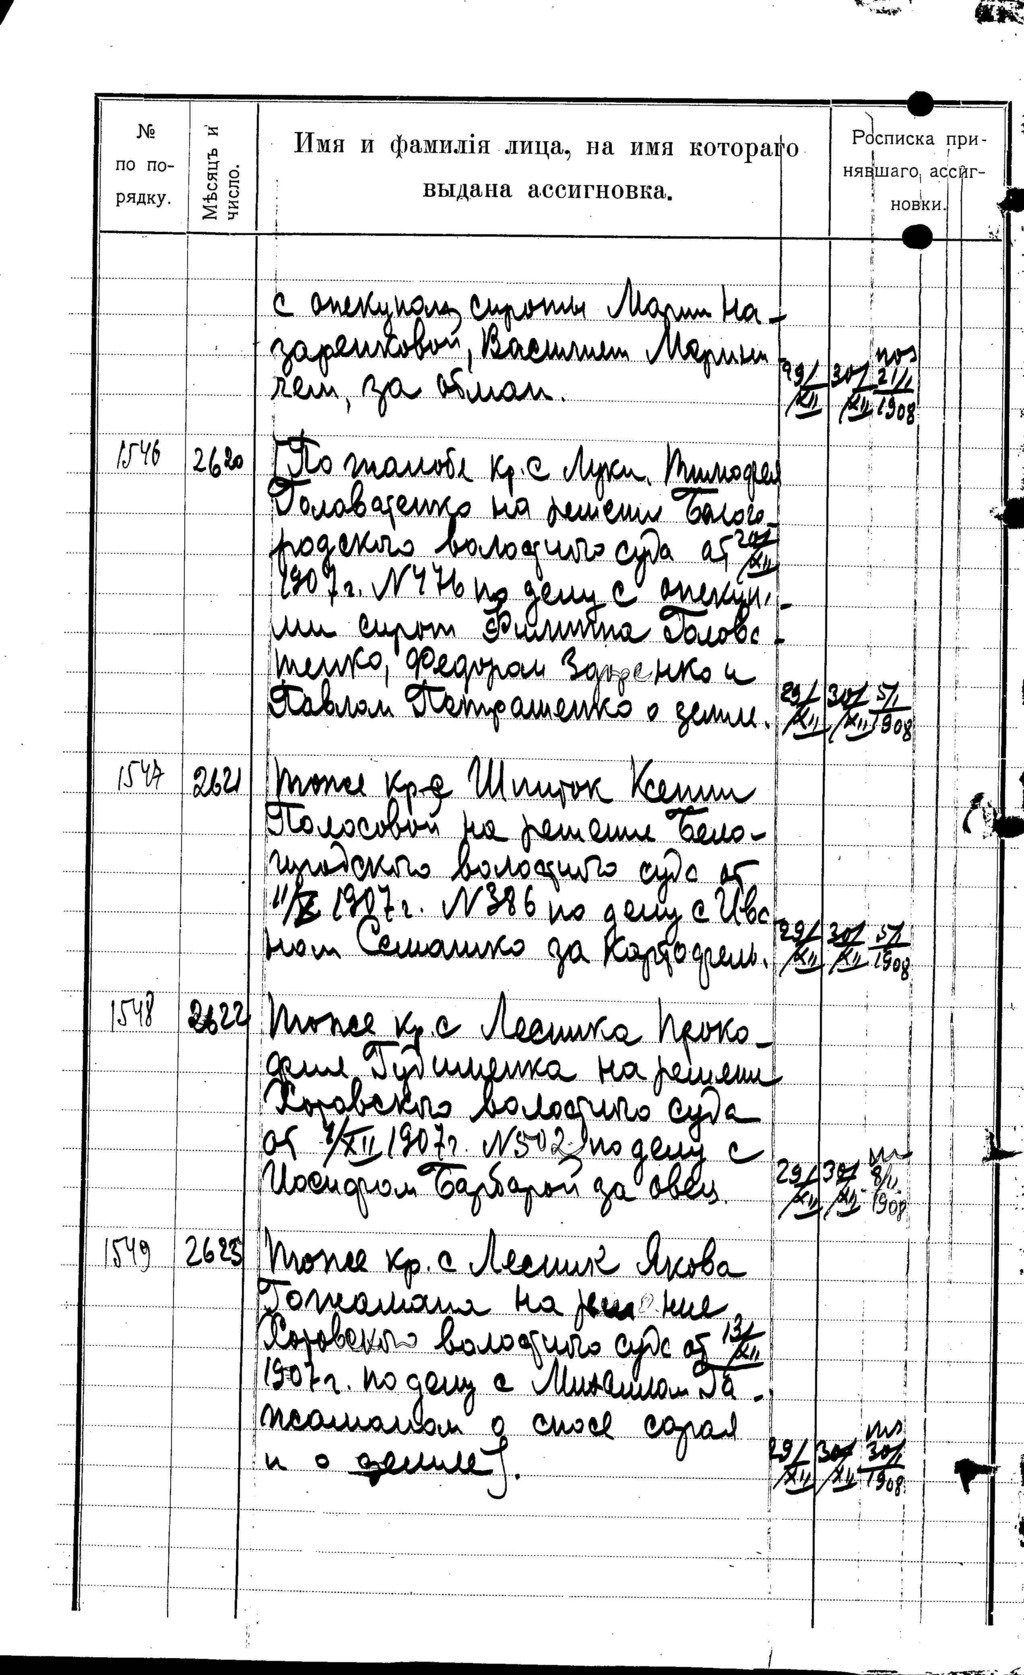 №
по по-
рядку.
Мѣсяцъ и
число.
Имя и фамилія лица, на имя котораго
выдана ассигновка.
Росписка при-
нявшаго ассиг-
новки.
с опекуном сироты Марии На-
заренковой, Василием Марини
чем, за обман.
29/XII 30/XII 21/I 1908
1546 2620 По жалобе кр. с Луки. Тимофея
Головатенко на решении Белого-
родского волостного суда от 20/XII
1907 г. N 476 по делу с опекун.-
ми сирот Филиппа Голова-
тенко, Федором Здоренко и
Павлом Петрашенко о земле.
29/XII 30/XII 5/I 1908
1547 2621 Тоже кр-с Шпиток Ксении
Полосовой на решение Бело-
городского волостного суда от
11/X 1907 г. N 386 по делу с Ива
ном Семашко за Картофель.
29/XII 30/XII 5/I 1908
1548 2622 Тоже кр. с Лесника Проко-
фия Гудименка на решении
Хотовского волостного суда
от 7/XII 1907 г. N 502 по делу с
Иосифом Барбарой за овец.
29/XII 30/XII 8/II 1908
1549 2623 Тоже кр. с Лесник Якова
на решение
Хотовского волостного суда от 13/XII
1907 г. по делу с Михаилом
о сносе сарая
и о земле.
29/XII 30/XII 30/I 1908